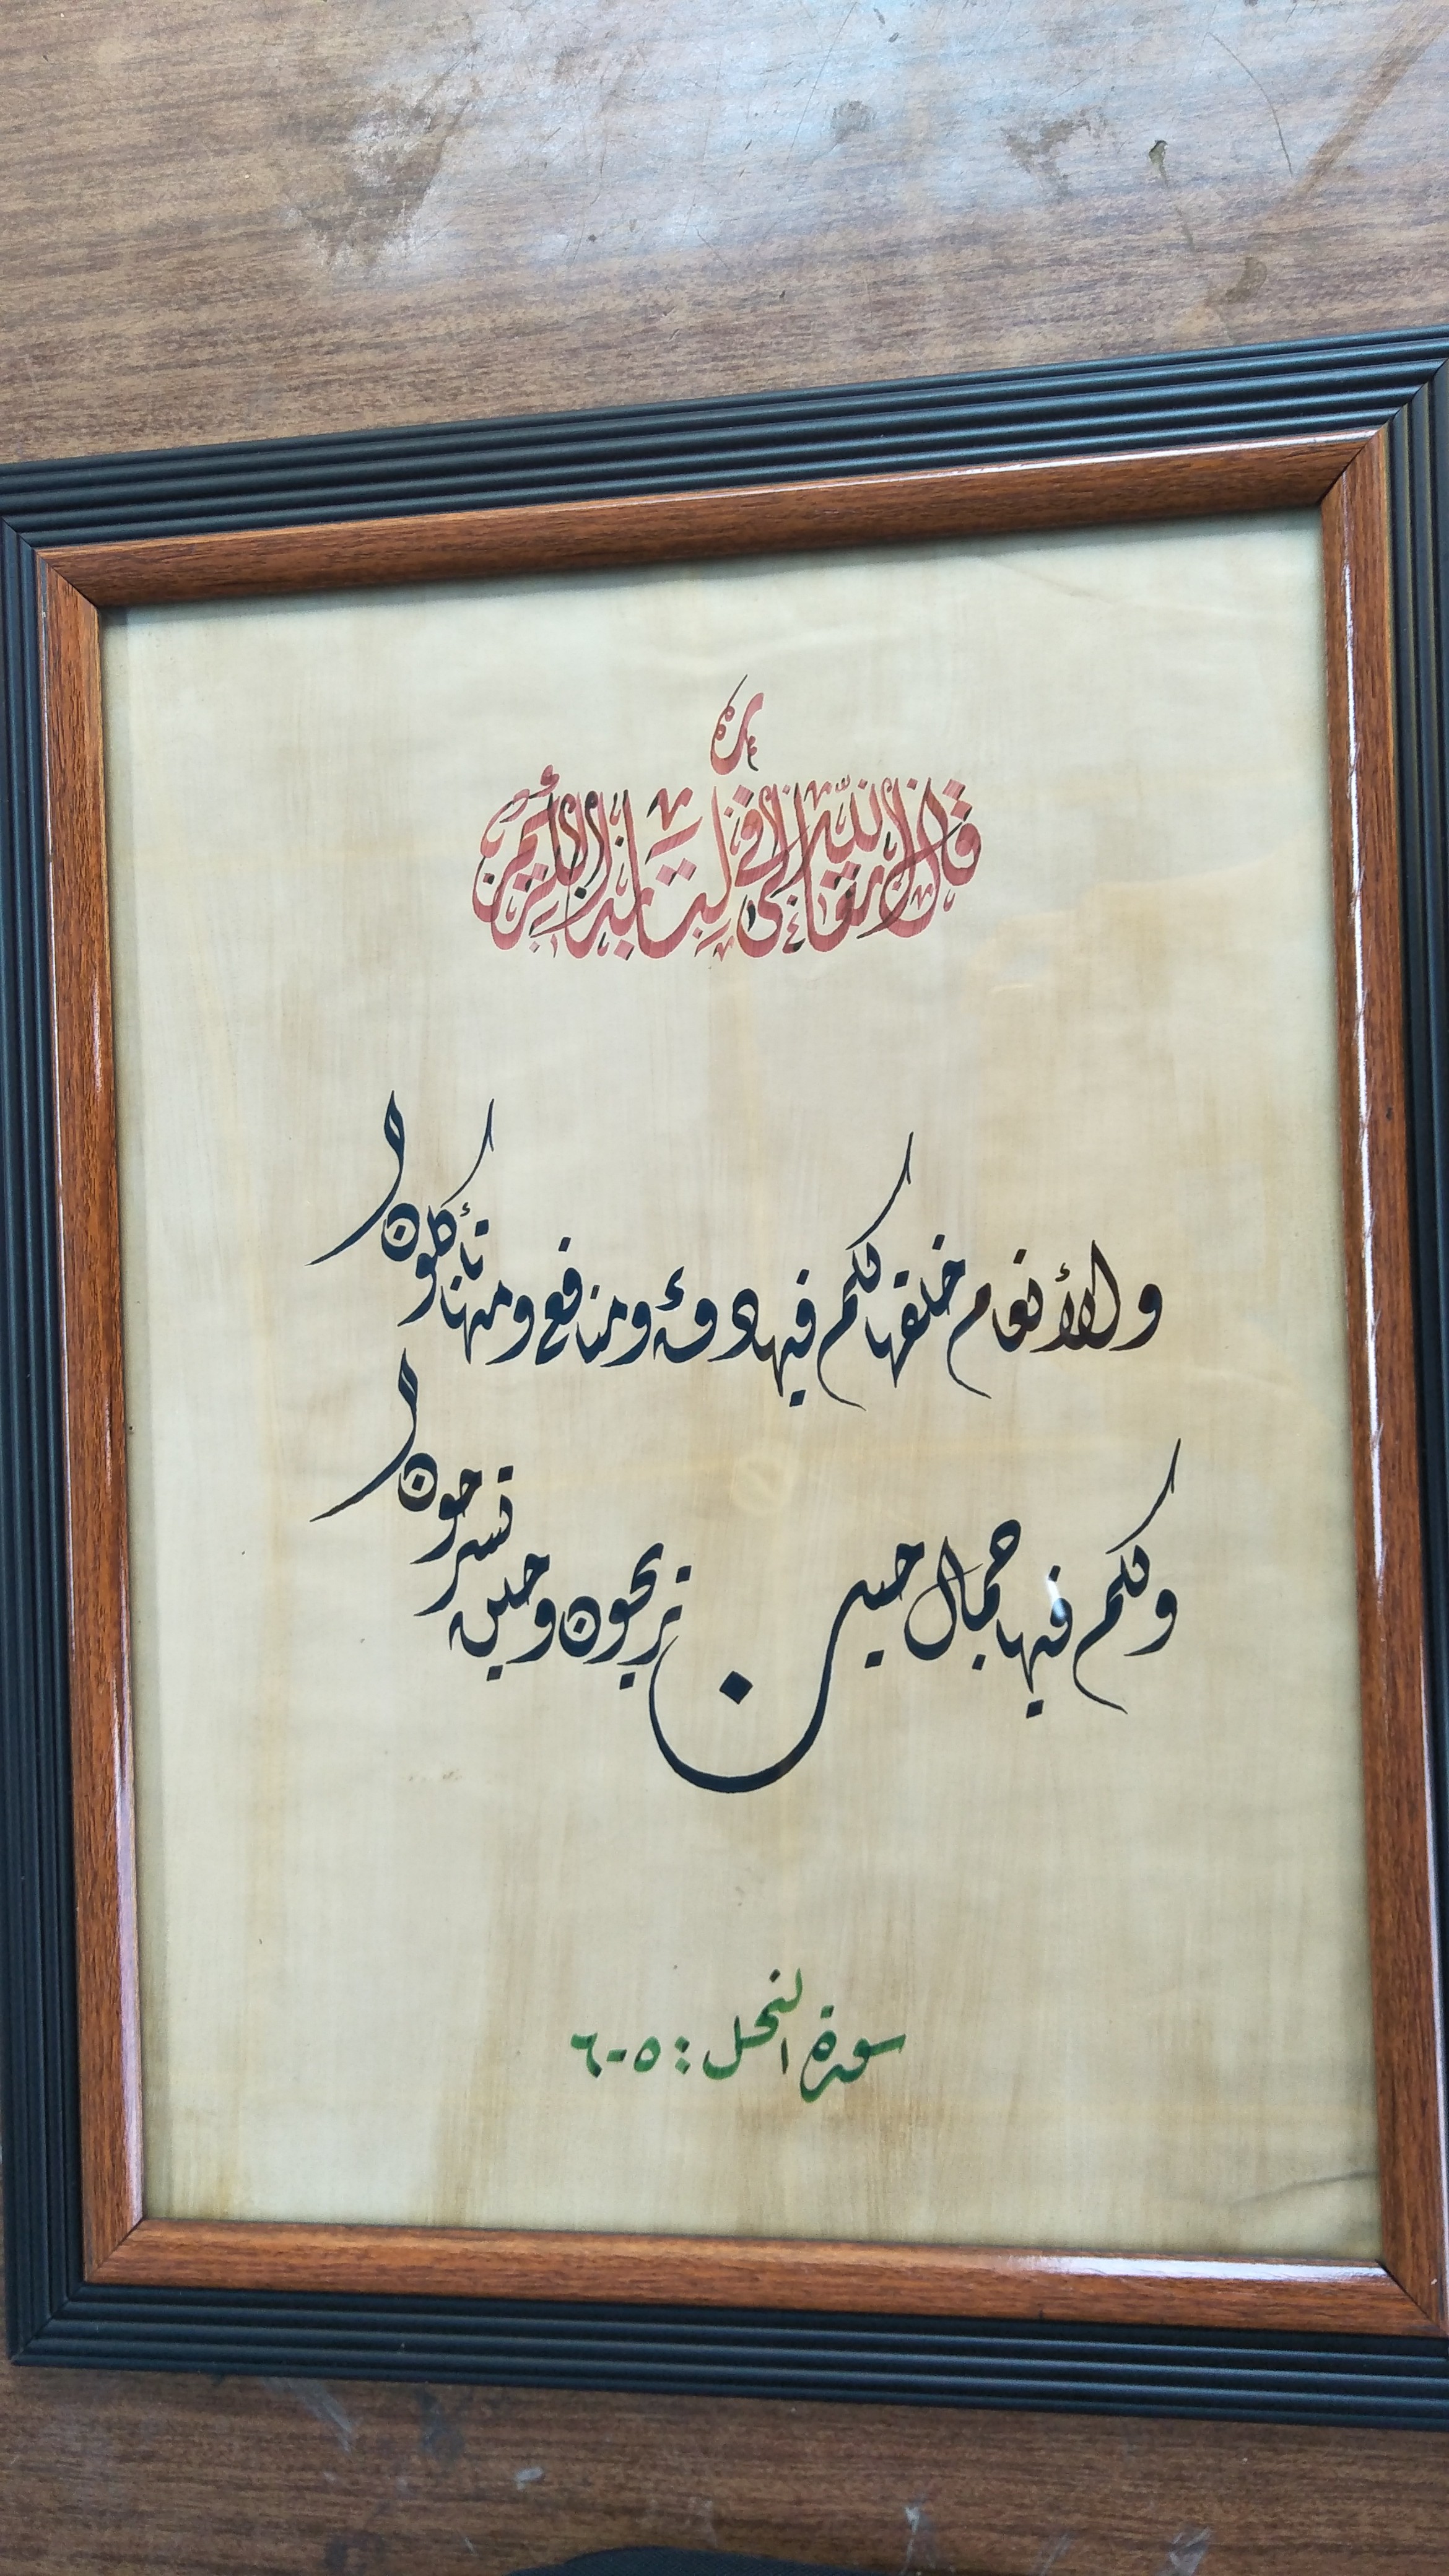 قال الله تعالى في كتابه الكريم
والأنعام خلقها لكم فيها دفء ومنافع ومنها تأكلون
ولكم فيها جمال حين تريحون وحين تسرحون
سورة النحل : ٥-٦